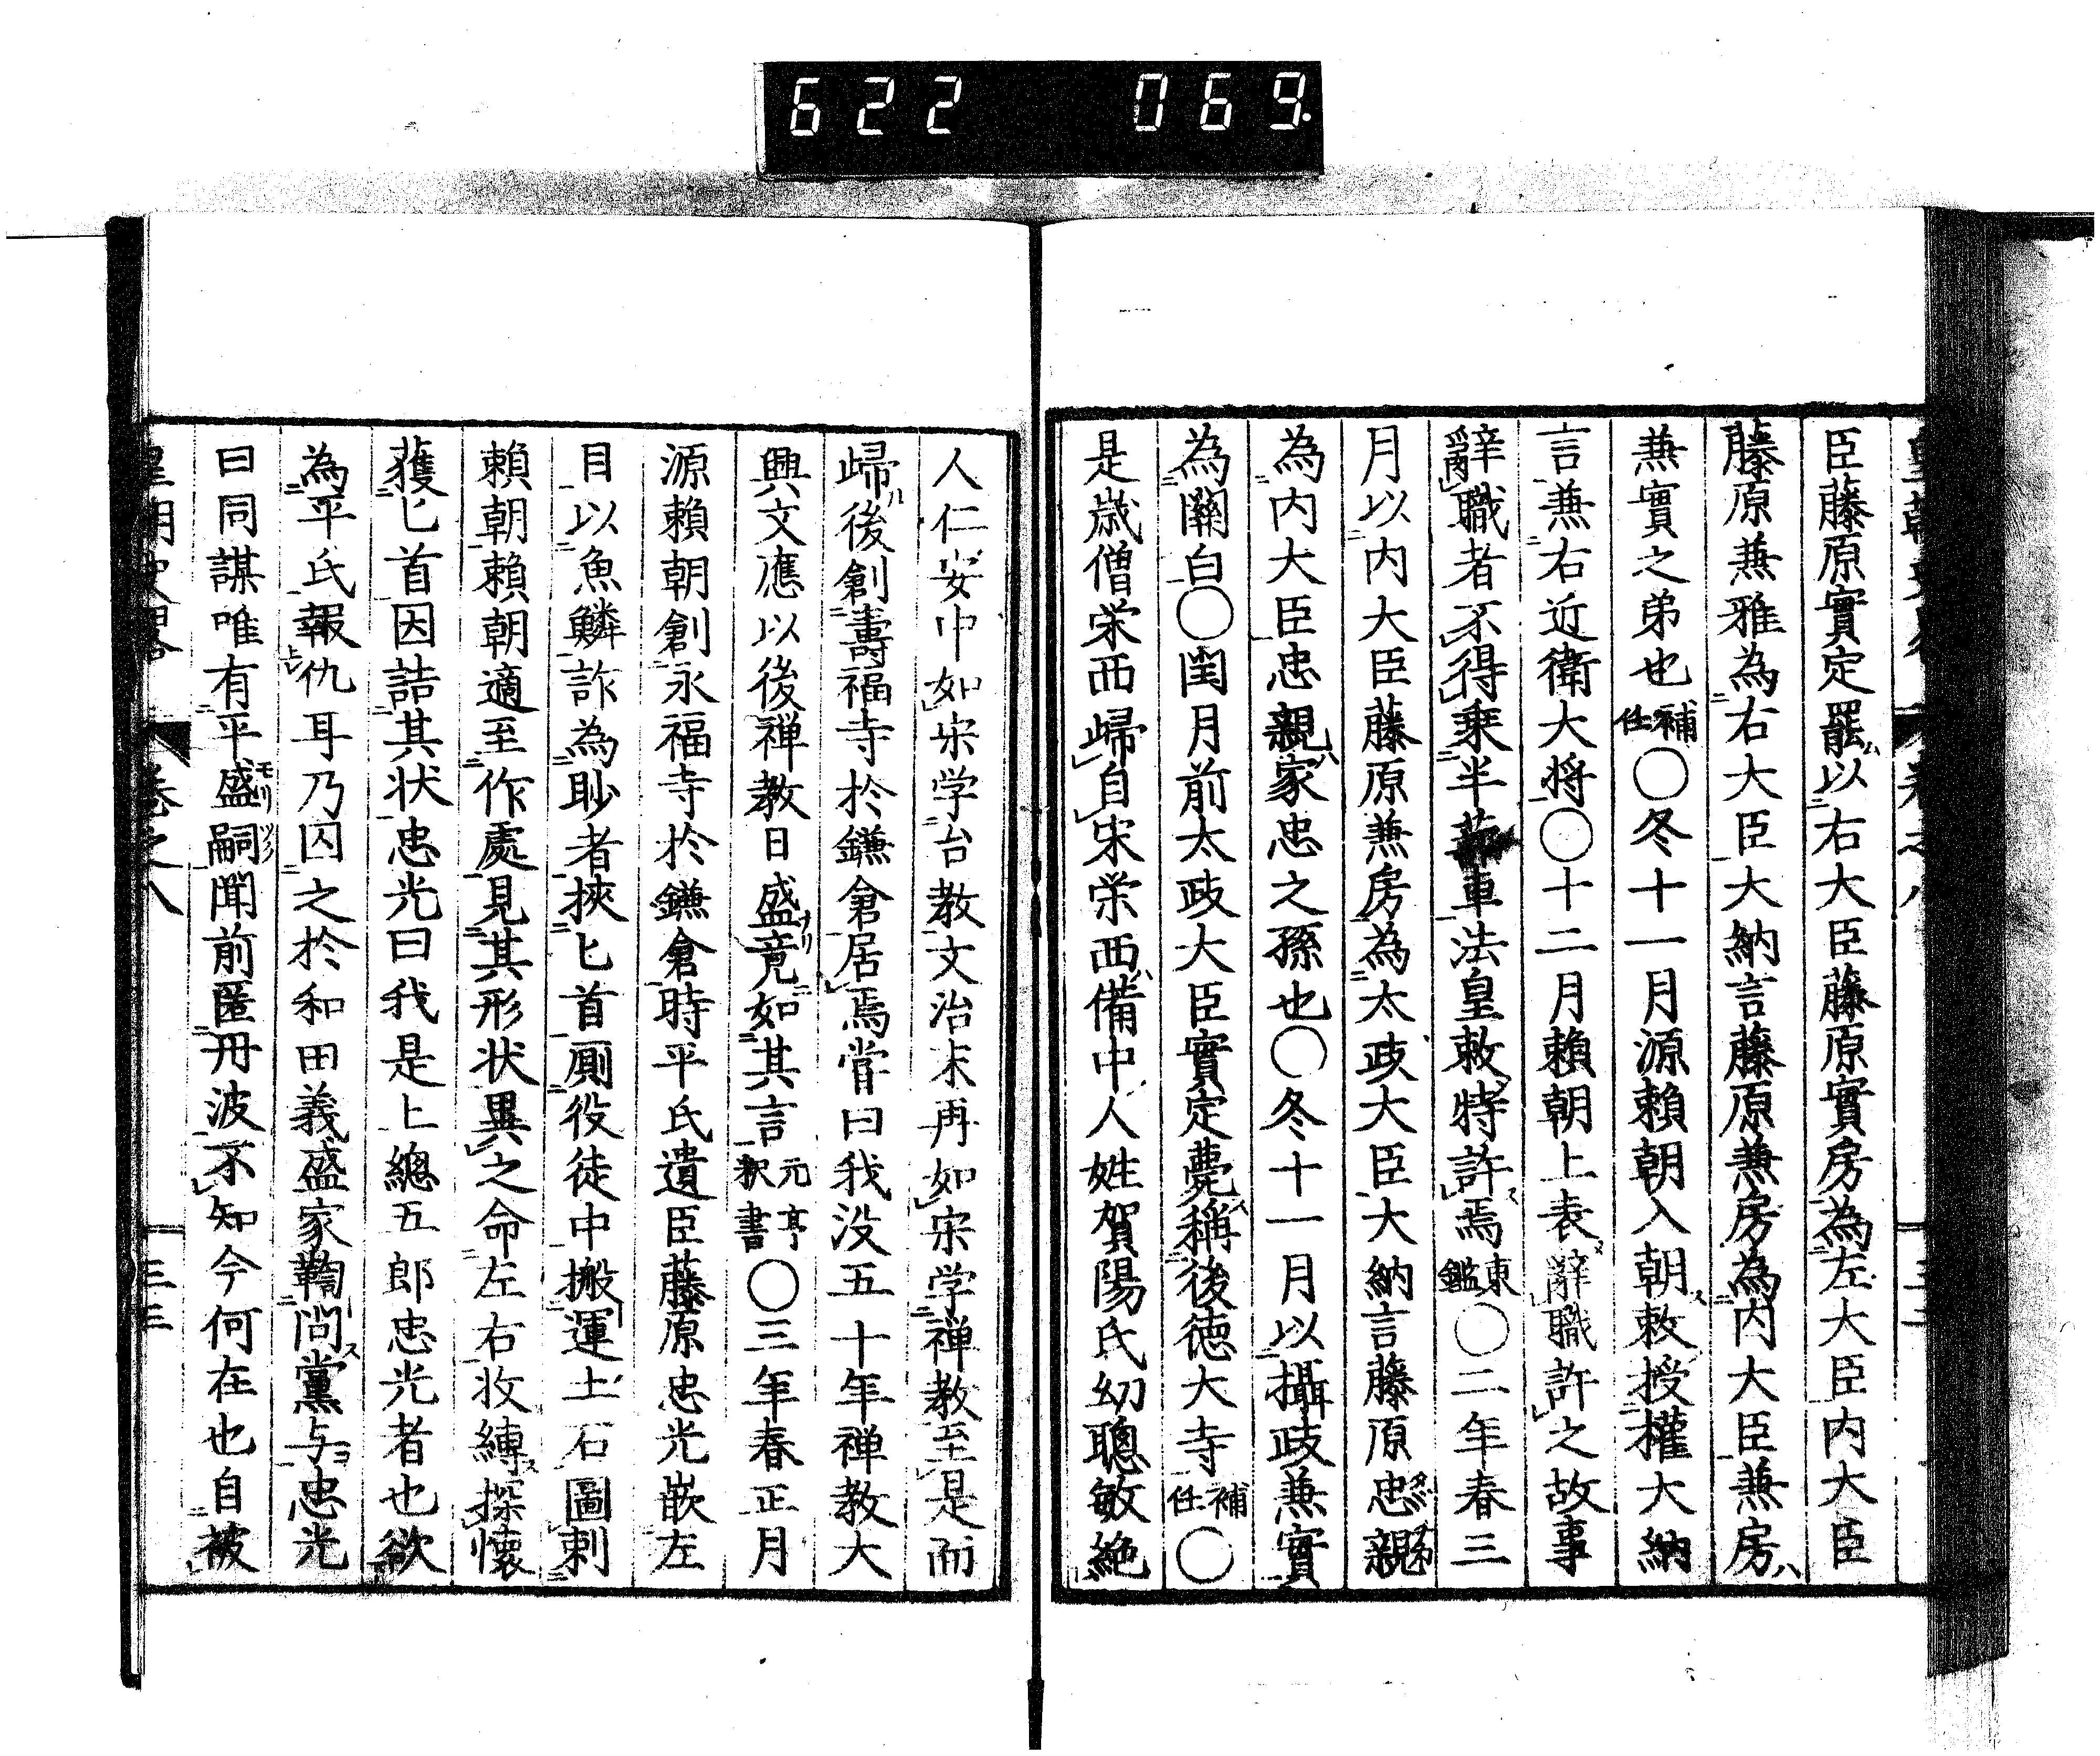 622 069.
臣藤原實定罷以右大臣藤原實房為左大臣内大臣
藤原兼雅為右大臣大納言藤原兼房為内大臣兼房ハ
兼實之弟也補任〇冬十一月源賴朝入朝ス敕授權大納
言兼右近衛大将〇十二月賴朝上表辭職許之故事
辞職者不得乗半蔀車法皇敕特許ス焉東鑑〇二年春三
月以内大臣藤原兼房為太政大臣大納言藤原忠親
為内大臣忠親ハ家忠之孫也〇冬十一月以攝政兼實
為關白〇閏月前太政大臣實定薨ス稱後徳大寺補任〇
是歳僧栄西歸自宋栄西ハ備中人姓賀陽氏幼聰敏絶
人仁安中如宋学台教文治末再如宋学禅教至是而
歸ル後創壽福寺於鎌倉居焉嘗曰我没五十年禅教大
興文應以後禅教日盛ナリ竟如其言元亨釈書〇三年春正月
源賴朝創永福寺於鎌倉時平氏遺臣藤原忠光嵌左
目以魚鱗詐為眇者挾匕首厠役徒中搬運土石圖刺
賴朝賴朝適至作處見其形状異之命左右收縛ス探懐
獲匕首因詰其状忠光曰我是上總五郎忠光者也欲
為平氏報仇耳乃囚之於和田義盛家鞫問ス黨与忠光
曰同謀唯有平盛嗣モリツグ聞前匿丹波不知今何在也自被
皇朝史畧 卷之八